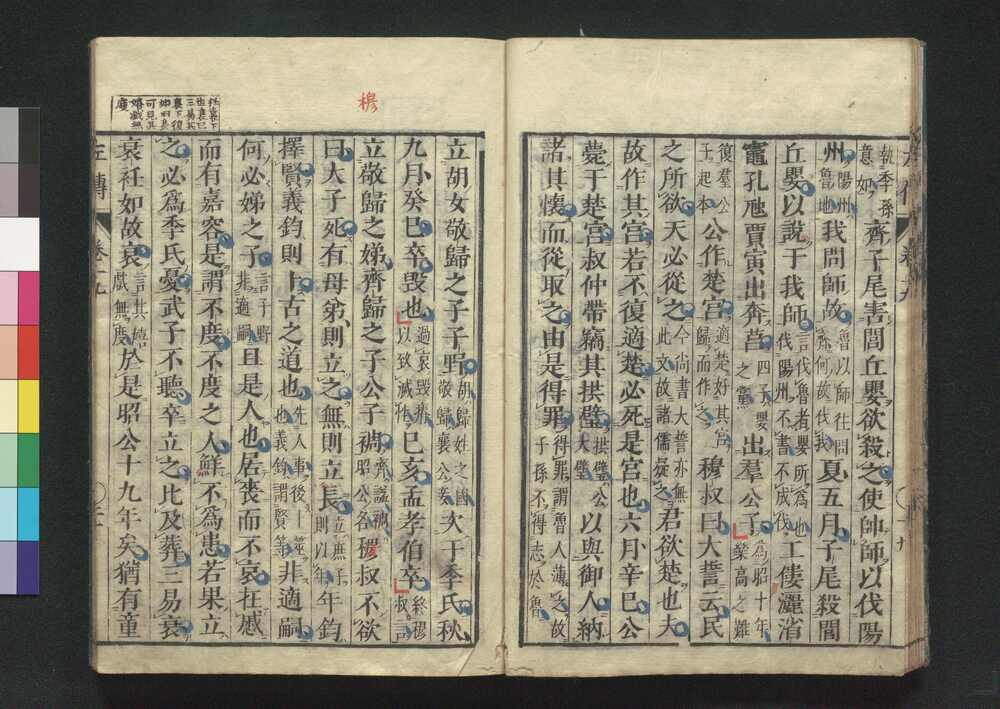 執季孫意如齊子尾害閭丘嬰欲殺之使帥師以伐陽
州陽州魯地我問師故魯以師往問齊何故伐我夏五月子尾殺閭
丘嬰以說于我師言伐魯者嬰所為也伐陽州不書不成伐工僂灑渻
竈孔虺賈寅出奔莒四子嬰之黨出羣公子為昭十年欒高之難
復羣公子起本公作楚宮適楚好其宮歸而作之穆叔曰大誓云民
之所欲天必從之今尚書大誓亦無此文故諸儒疑之君欲楚也夫
故作其宮若不復適楚必死是宮也六月辛巳公
薨于楚宮叔仲帶竊其拱璧拱璧公大璧以與御人納
諸其懷而從取之由是得罪得罪謂魯人薄之故子孫不得志於魯
穆
立胡女敬歸之子子野胡歸姓之國敬歸襄公妾次于季氏秋
九月癸巳卒毀也過哀毀瘠以致滅性己亥孟孝伯卒終穆叔言
立敬歸之娣齊歸之子公子裯齊謚裯昭公名穆叔不欲
曰大子死有母弟則立之無則立長立庶子則以年年鈞
擇賢義鈞則卜古之道也先人事後卜筮也義鈞謂賢等非適嗣
何必娣之子言子野非適嗣且是人也居喪而不哀在慼
而有嘉容是謂不度不度之人鮮不為患若果立
之必為季氏憂武子不聽卒立之比及葬三易衰
衰衽如故衰言其嬉戲無度於是昭公十九年矣猶有童
左傳 卷十九